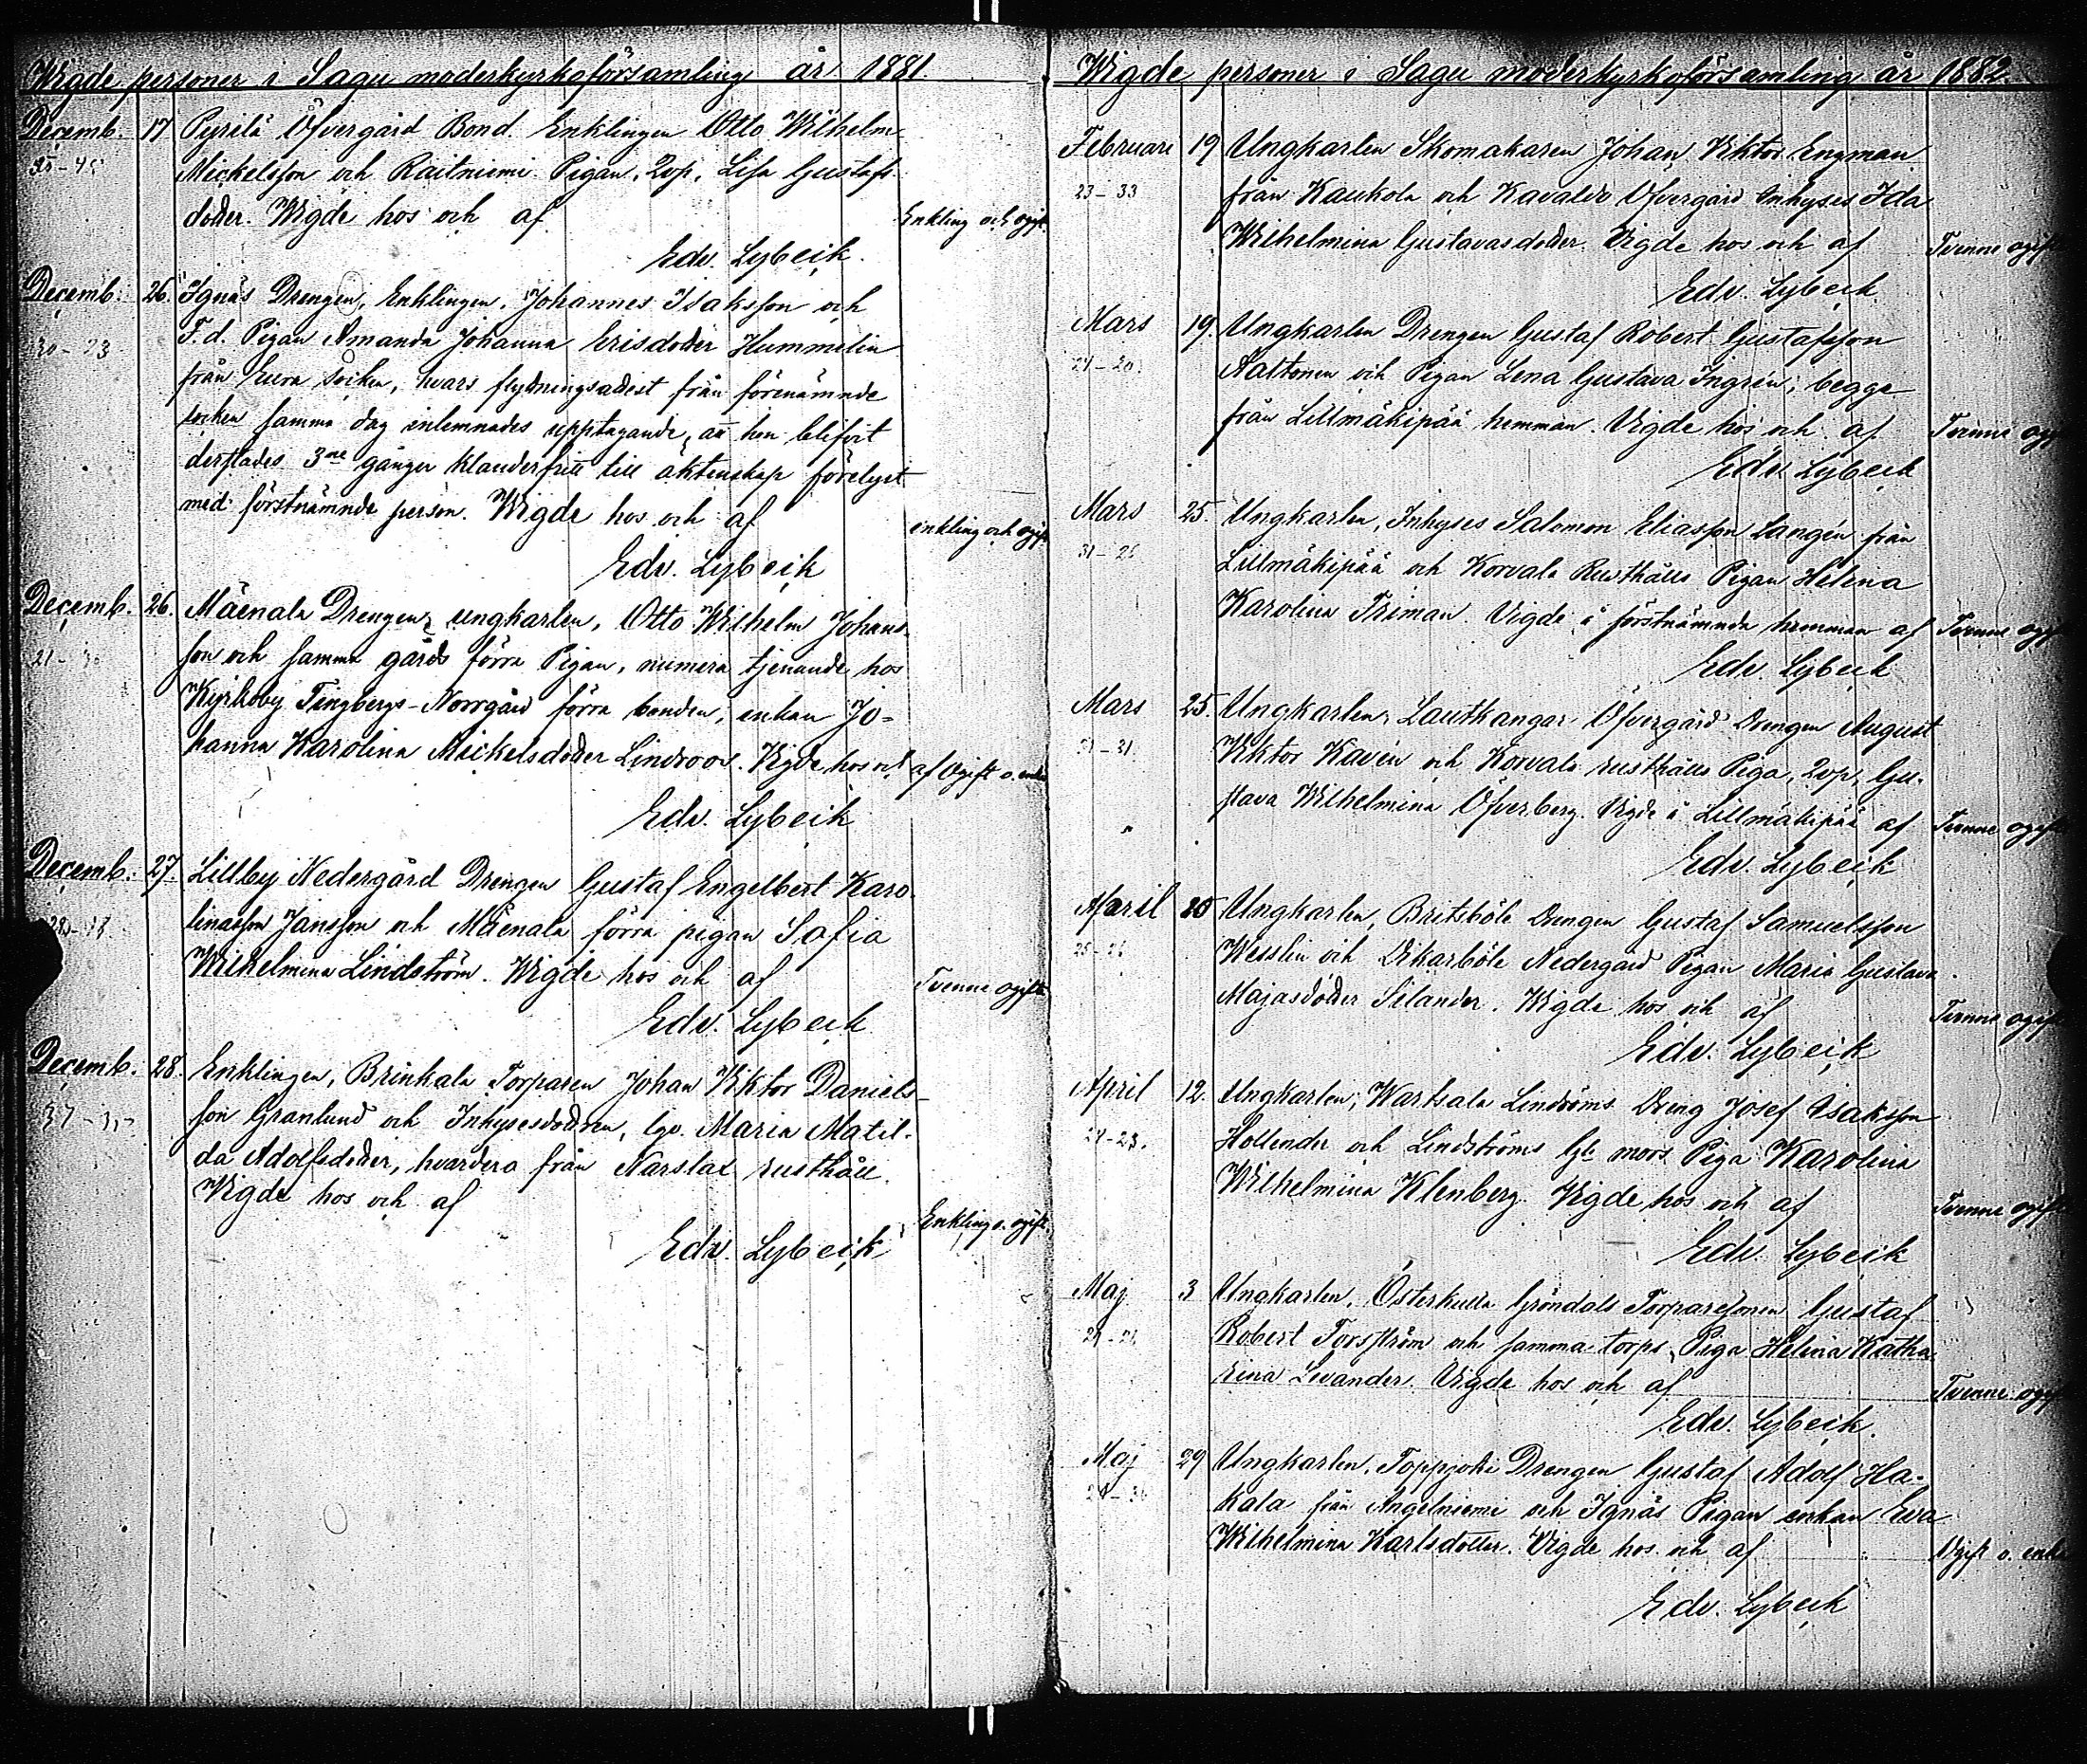 Wigde personer i Sagu moderkyrkoförsamling år 1881.
Decemb. 17 Pyrilä Öfvergård Bond. Enklingen Otto Wilhelm
35-45 Mickelsson och Raitniemi Pigan, 2vp, Lisa Gustafs
dotter. Wigde hos och af Enkling och ogift.
Edv. Lybeck.
Decemb. 26. Ignäs Drengen, Enklingen, Johannes Isaksson och
30-23 F. d. Pigan Amanda Johanna Erisdotter Hummelin
från Eura Socken, hvars flyttningsattest från förenämnde
socken samma dag inlemnades upptagande, att hon blifvit
derstädes 3ne gånger klanderfritt till äktenskap förelyst
med förstnämnde person. Wigde hos och af enkling och ogift
Edv. Lybeck
Decemb. 26. Mäenala Drengen, ungkarlen, Otto Wilhelm Johans-
son och samma gårds förra Pigan, numera tjenande hos
Kyrkoby Tingbergs-Norrgård förra bonden, enkan Jo=
hanna Karolina Mickelsdotter Lindroos. Wigde hos och af Ogift o. enka
Edv. Lybeck
Decemb. 27. Lillby Nedergård Drengen Gustaf Engelbert Karo-
linasson Jansson och Mäenala förra pigan Sofia
Wilhelmina Lindström. Wigde hos och af Tvenne ogifte
Edv. Lybeck
Decemb. 28. Enklingen, Brinkala Torparen Johan Viktor Daniels-
son Granlund och Inhysesdottren, Maria Matil-
da Adolfsdotter, hvardera från Närstal rusthåll.
Wigde hos och af Enkling o. ogift.
Edv. Lybeck
Wigde personer i Sagu moderkyrkoförsamling år 1882.
Februari 19 Ungkarlen Skomakaren Johan Viktor Engman
23-33 från Kaukola och Kavaldo Öfvergård Inhyses Ida
Wilhelmina Gustavasdotter. Vigde hos och af Tvenne ogifte
Edv. Lybeck
Mars 19. Ungkarlen Drengen Gustaf Robert Gustafsson
Aaltonen och Pigan Lena Gustava Ingrén, begge
från Lillmäkipää hemman. Vigde hos och af Tvenne ogifte
Edv. Lybeck
Mars 25. Ungkarlen, Inhyses Salomon Eliasson Langén från
Lillmäkipää och Korvala Rusthålls Pigan Helena
Karolina Friman. Vigde å förstnämnda hemman af Tvenne ogifte
Edv. Lybeck
Mars 25. Ungkarlen, Lautkangar Öfvergård Drengen August
Viktor Kavén och Korvala rusthålls Piga, 2vp, Gu-
stava Wilhelmina Öfverberg. Vigde å Lillmäkipää af Tvenne ogifte
Edv. Lybeck
April 10 Ungkarlen, Britsböle Drengen Gustaf Samuelsson
Wesslin och Dikarböle Nedergård Pigan Maria Gustava
Majasdotter Silander. Wigde hos och af Tvenne ogifte
Edv. Lybeck
April 12. Ungkarlen, Wartsala Lindroms Dreng Josef Isaksson
24-23. Hollender och Lindströms Piga Karolina
Wilhelmina Klenberg. Wigde hos och af Tvenne ogifte
Edv. Lybeck
Maj 3 Ungkarlen, Österkulla Gröndals Torparesonen Gustaf
Robert Forsström och samma torps Piga Helena Katha
rina Levander. Vigde hos och af Tvenne ogifte
Edv. Lybeck.
Maj 29 Ungkarlen, Toppjoki Drengen Gustaf Adolf Ha-
kala från Angelniemi och Ignäs Pigan enkan Eva
Wilhelmina Karlsdotter. Vigde hos och af Ogift o. enka
Edv. Lybeck